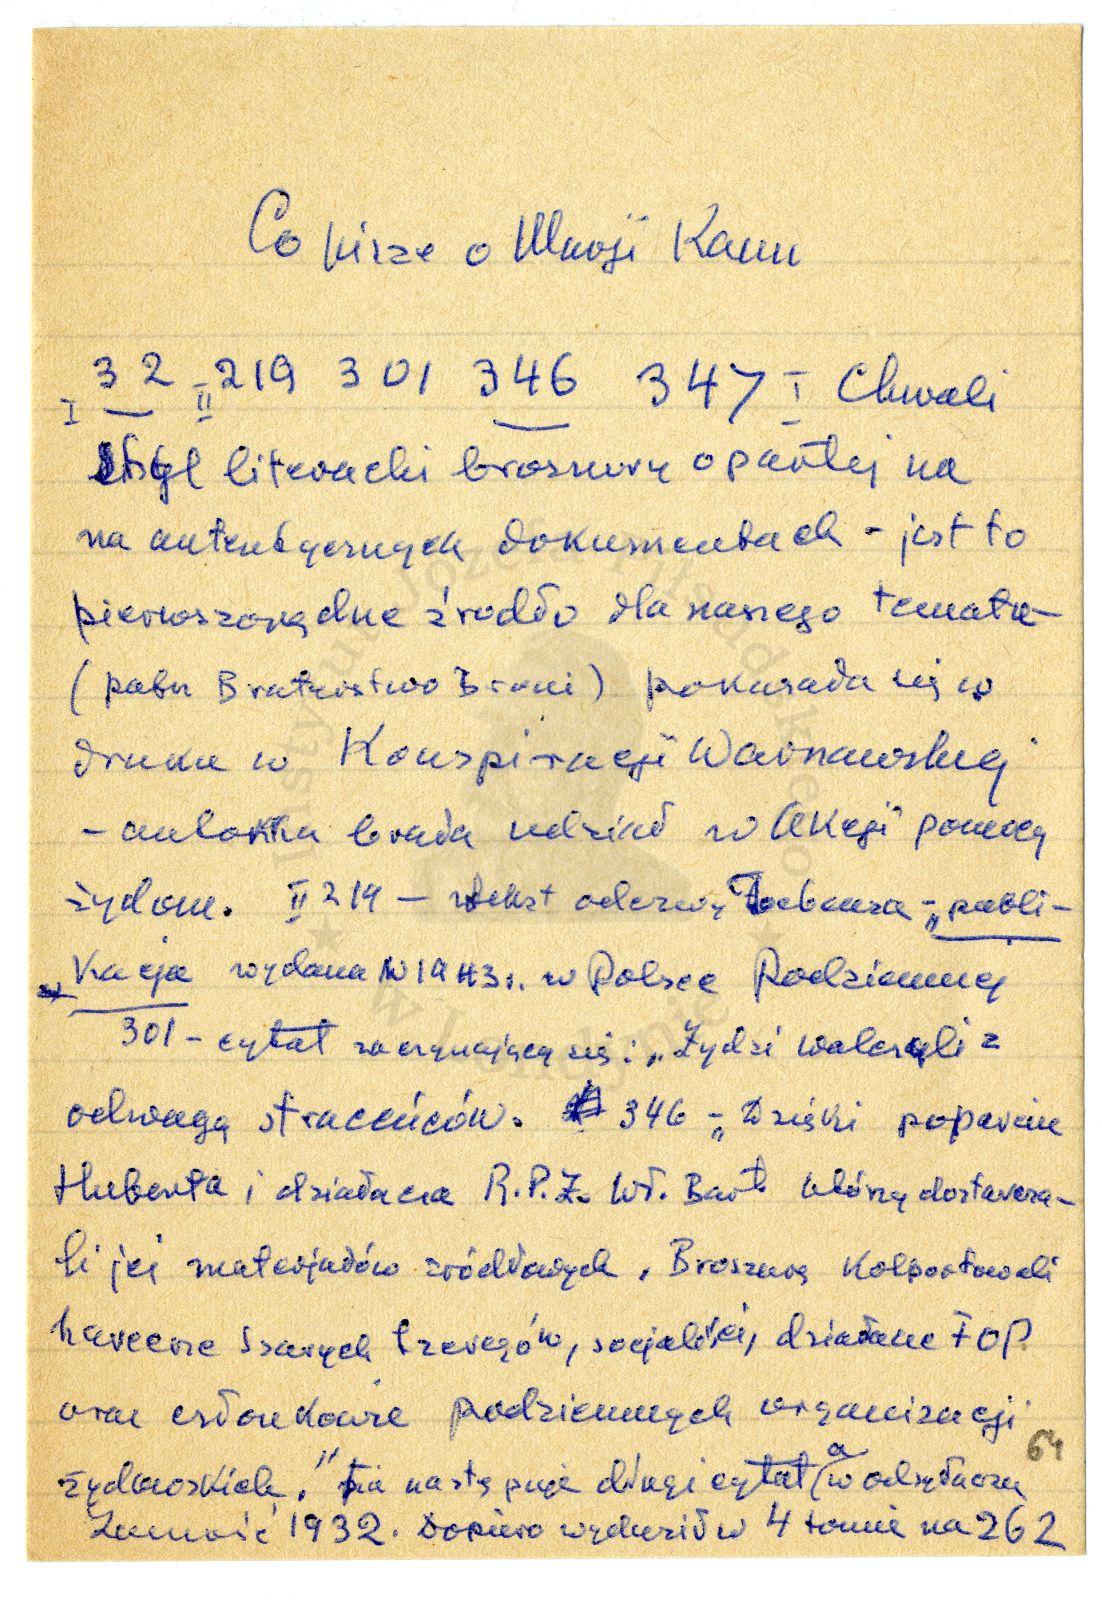 Co pisze o Marji Kann
32 II 219 301 346 347 I Chwali
I
styl literacki broszury opartej na
na autentycznych dokumentach - jest to
pierwszorzędne źródło dla naszego tematu -
(patrz Braterstwo Broni) pokazała się w
druku w Konspiracji Warszawskiej
- autorka brała udział w Akcji pomocy
żydom. II 219 - tekst odezwy - "publi-
kacja wydana w 1943 r. w Polsce Podziemnej
301 - cytat zaczynający się: "Żydzi walczyli z
odwagą straceńców. 346 - "Dzięki poparciu
Huberta i działacza R.P.Ż. Wł. Bart. którzy dostarcza-
li jej materjałów źródłowych. Broszurę kolportowali
harcerze Szarych Szeregów, socjaliści, działacze FOP.
oraz członkowie podziemnych organizacji
żydowskich." następuje długi cytat (a w odsyłaczu
1932. Dopiero w 4 tomie na 262
64
Instytut Józefa Piłsudskiego
w Londynie